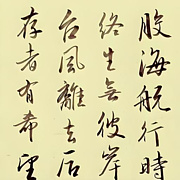 股海航行時
終生無彼岸
台風離去后
存者有希望